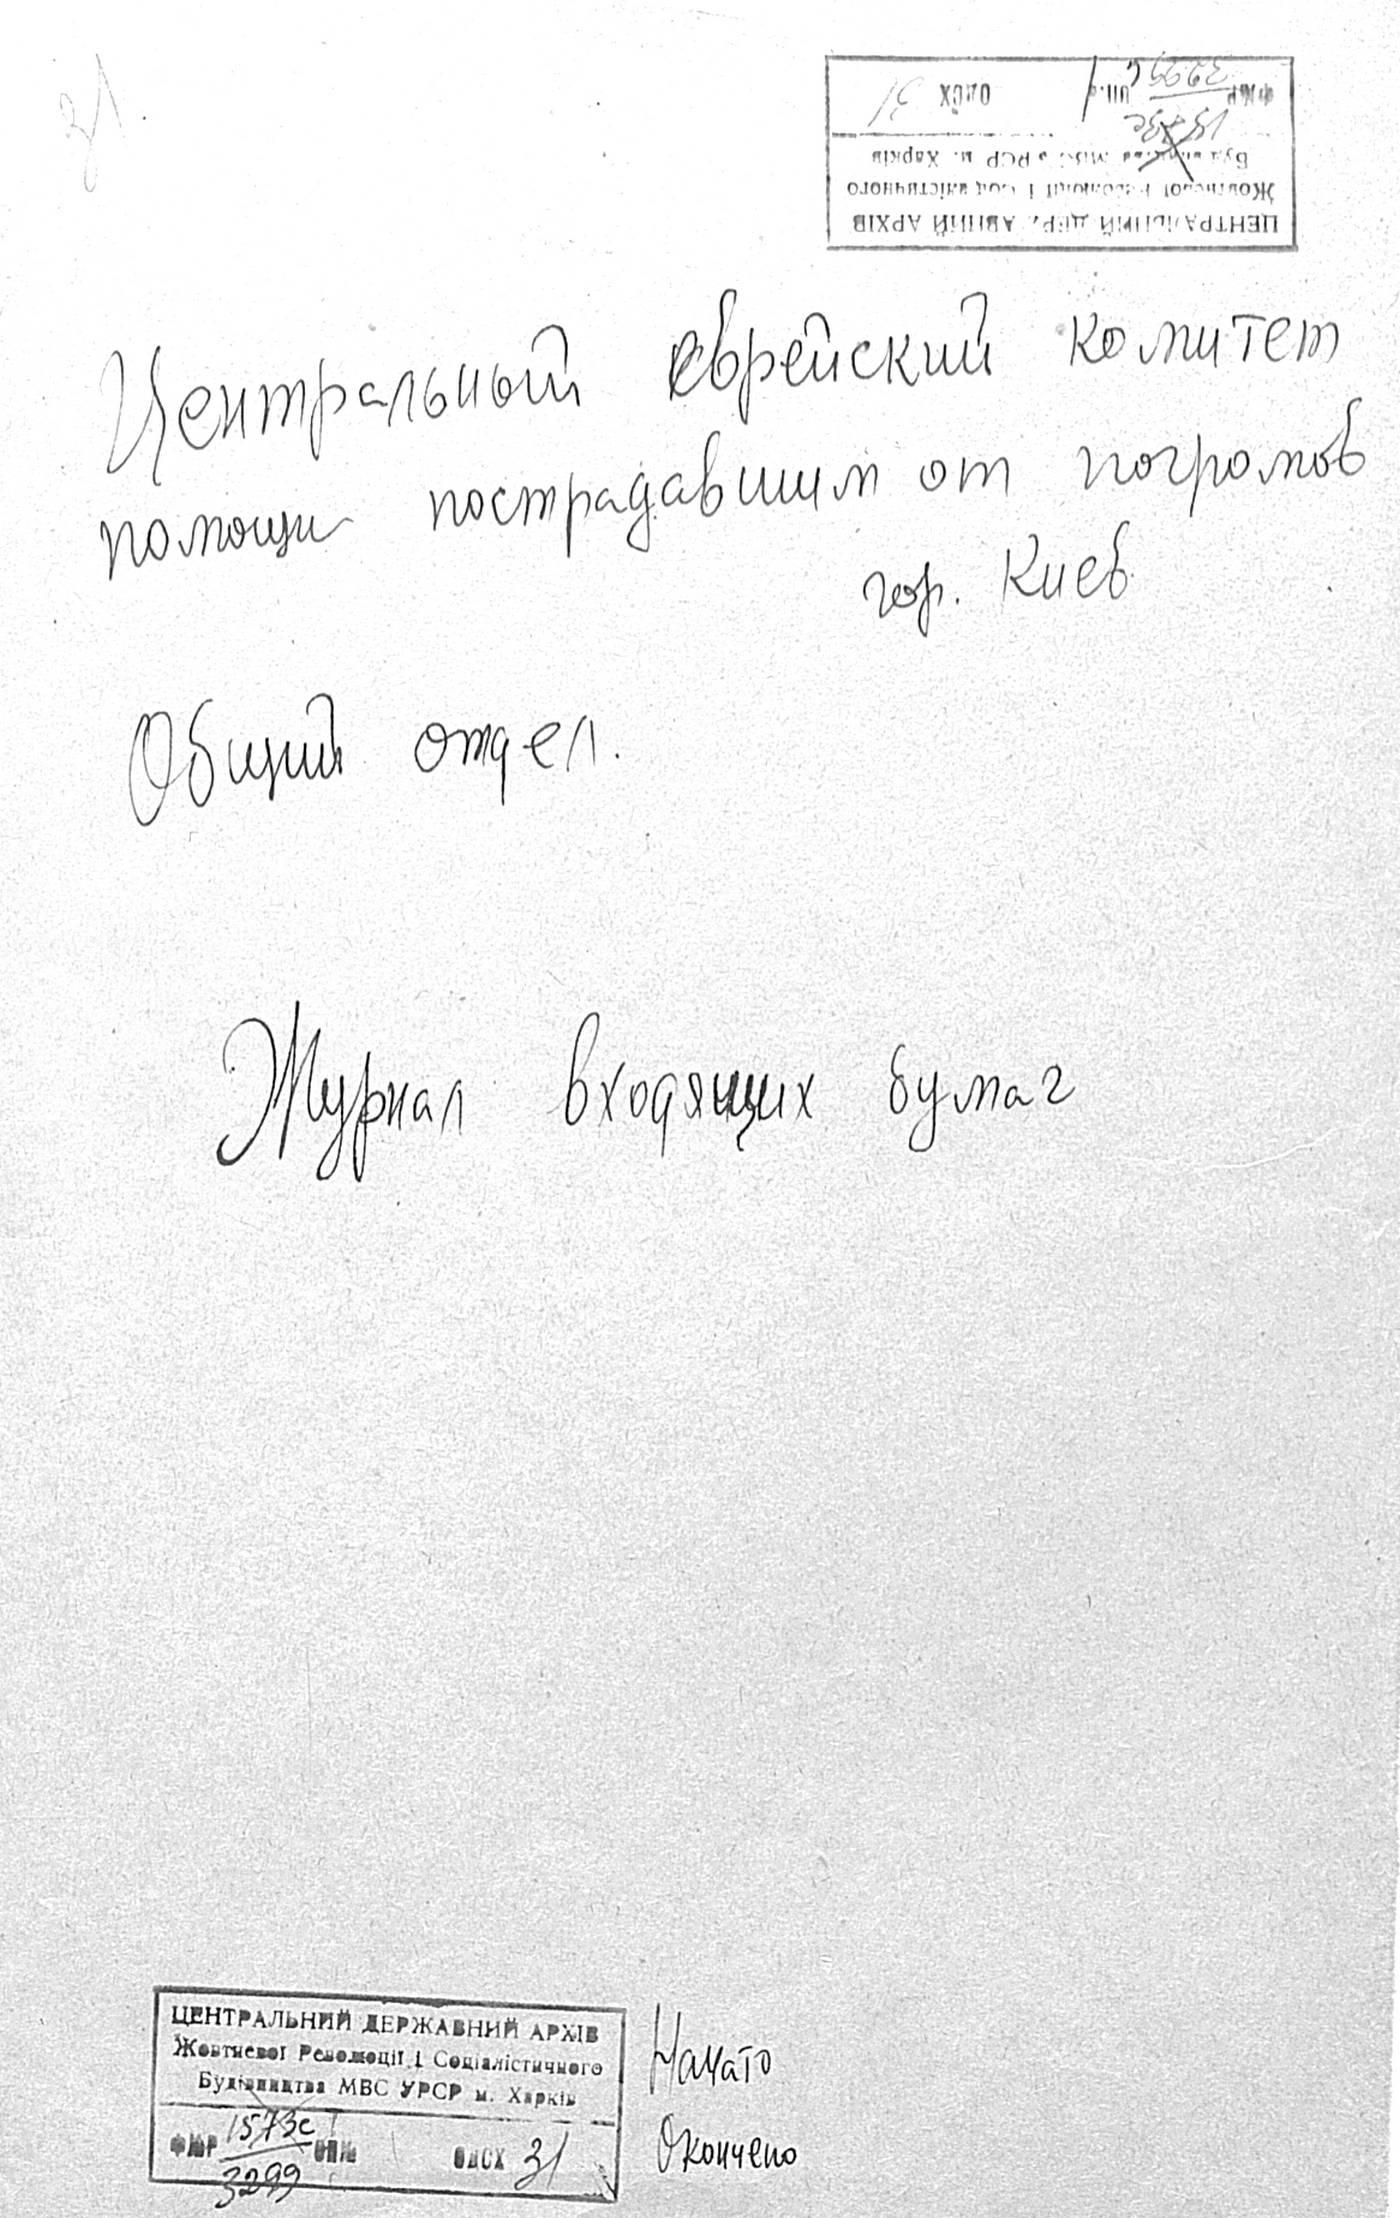 31
ЦЕНТРАЛЬНИЙ ДЕРЖАВНИЙ АРХІВ
Жовтневої Революції і Соціалістичного
Будівництва МВС УРСР м. Харків
1573с
ФМР 3299 оп. 1 ОДСХ 31
Центральный еврейский комитет
помощи пострадавшим от погромов
гор. Киев
Общий отдел.
Журнал входящих бумаг
ЦЕНТРАЛЬНИЙ ДЕРЖАВНИЙ АРХІВ
Жовтневої Революції і Соціалістичного
Будівництва МВС УРСР м. Харків
1573с
3299
31
Начато
Окончено